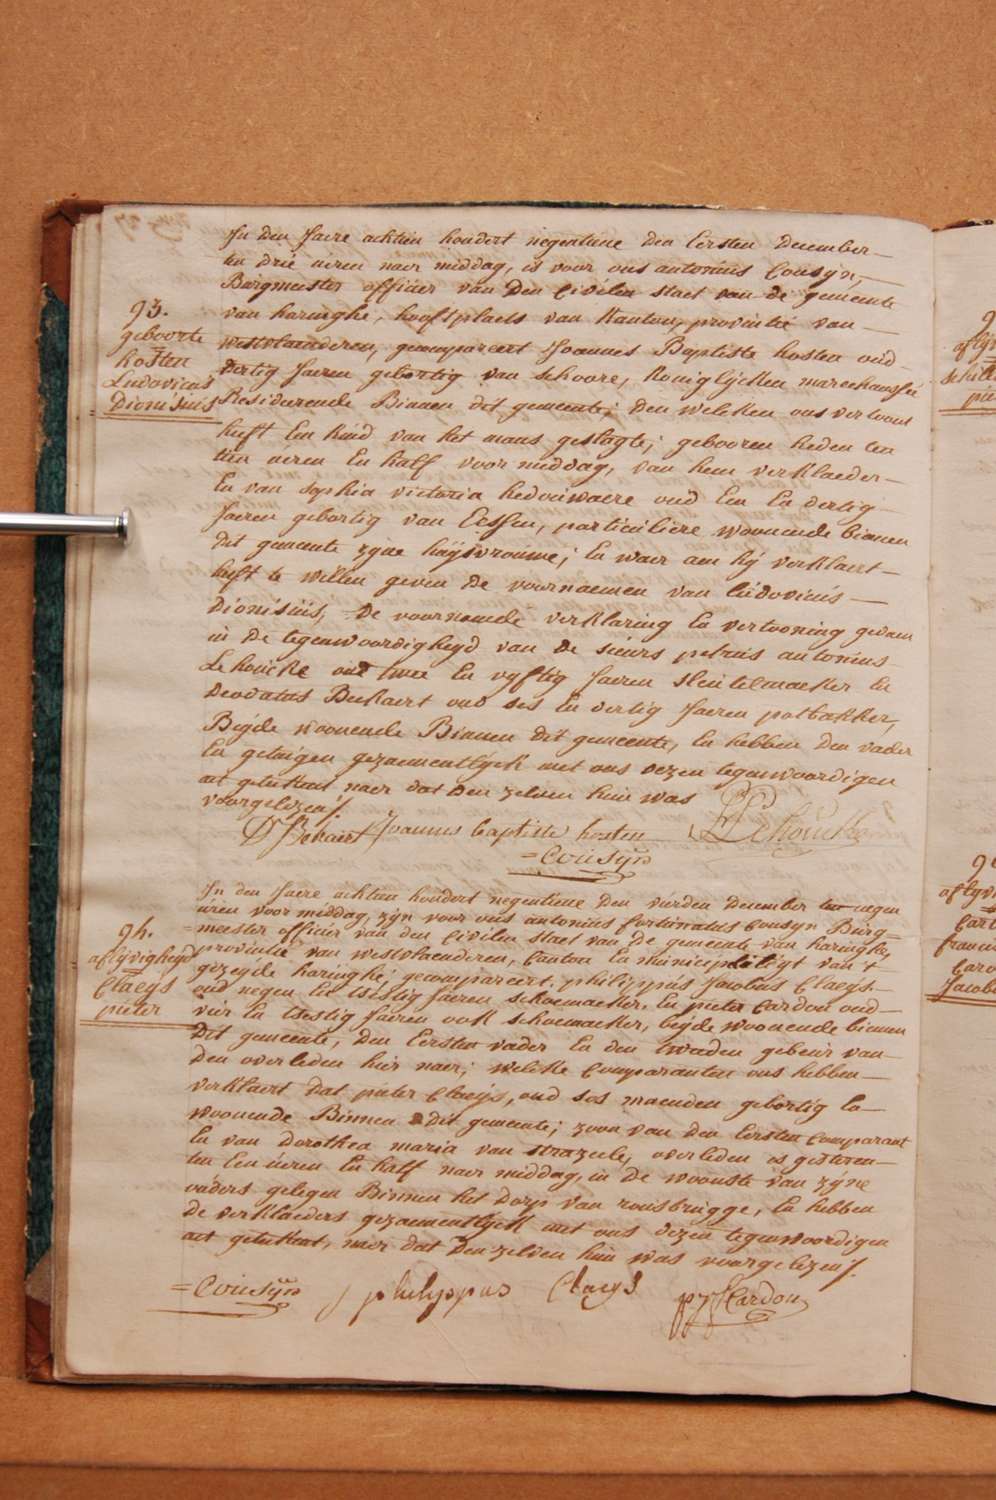 93.
geboorte
hosten
Ludovicus
Dionisius
In den Jaere achtien hondert negentiene den Eersten december
ten drie uren naer middag, is voor ons antonius Cousyn,
Burgmeester officier van den Civilen staet van de gemeente
van haringhe, hooftplaets van kanton, provintie van
westvlaenderen, gecompareert Joannes Baptiste hosten oud
dertig Jaeren gebortig van schoore, koniglijcken marechaussée
Residerende Binnen dit gemeente; den welcken ons vertoont
heeft Een kind van het mans geslagte; gebooren heden ten
tien uren En half voormiddag, van hem verklaeder
En van sophia victoria hedouwaere oud Een En dertig
Jaeren gebortig van Eessen, particuliere woonende binnen
dit gemeente zyne huysvrouwe; En waer aen hÿ verklaert
heeft te willen geven de voornaemen van Ludovicus
Dionisius, De voornomde verklaring En vertooning gedaen
in de tegenwoordigheyd van de sieurs petrus antonius
Lehoucke oud twee En vyftig Jaeren sleutelmaeker En
Deodatus Bekaert oud ses En dertig Jaeren potbakker,
Beÿde woonende Binnen dit gemeente, En hebben den vader
En getuigen gezaementlyck met ons dezen tegenwoordigen
act geteekent naer dat den zelven hun was
voorgelezen/.
D Bekaert Joannes baptiste hosten Lehoucke
=Cousÿn
94.
aflyvigheyd
Claeys
pieter
In den Jaere achtien hondert negentiene den vierden december ten negen
uren voor middag, zyn voor ons antonius fortunatus Cousyn Burg=
=meester officier van den Civilen staet van de gemeente van haringhe,
provintie van westvlaenderen, Canton En municipaliteyt van 't
gezeyde haringhe; gecompareert, philippus Jacobus Claeys
oud negen En tsestig Jaeren schoemaeker, En pieter Cardon oud
vier En tsestig Jaeren ook schoemaeker, beÿde woonende binnen
dit gemeente, den Eersten vader En den tweeden gebeur van
den overleden hier naer; welcke Comparanten ons hebben
verklaert dat pieter Claeÿs, oud ses maenden gebortig En
woonende Binnen dit gemeente; zoon van den Eersten Comparant
En van dorothea maria van strazeele, overleden is gisteren
ten Een uren En half naer middag, in de woonste van zÿne
vaders gelegen Binnen het dorp van rousbrugge, En hebben
de verklaeders gezaementlÿck met ons dezen tegenwoordigen
act geteekent, naer dat den zelven hun was voorgelezen/.
=Cousÿn philippus Claeys Cardon